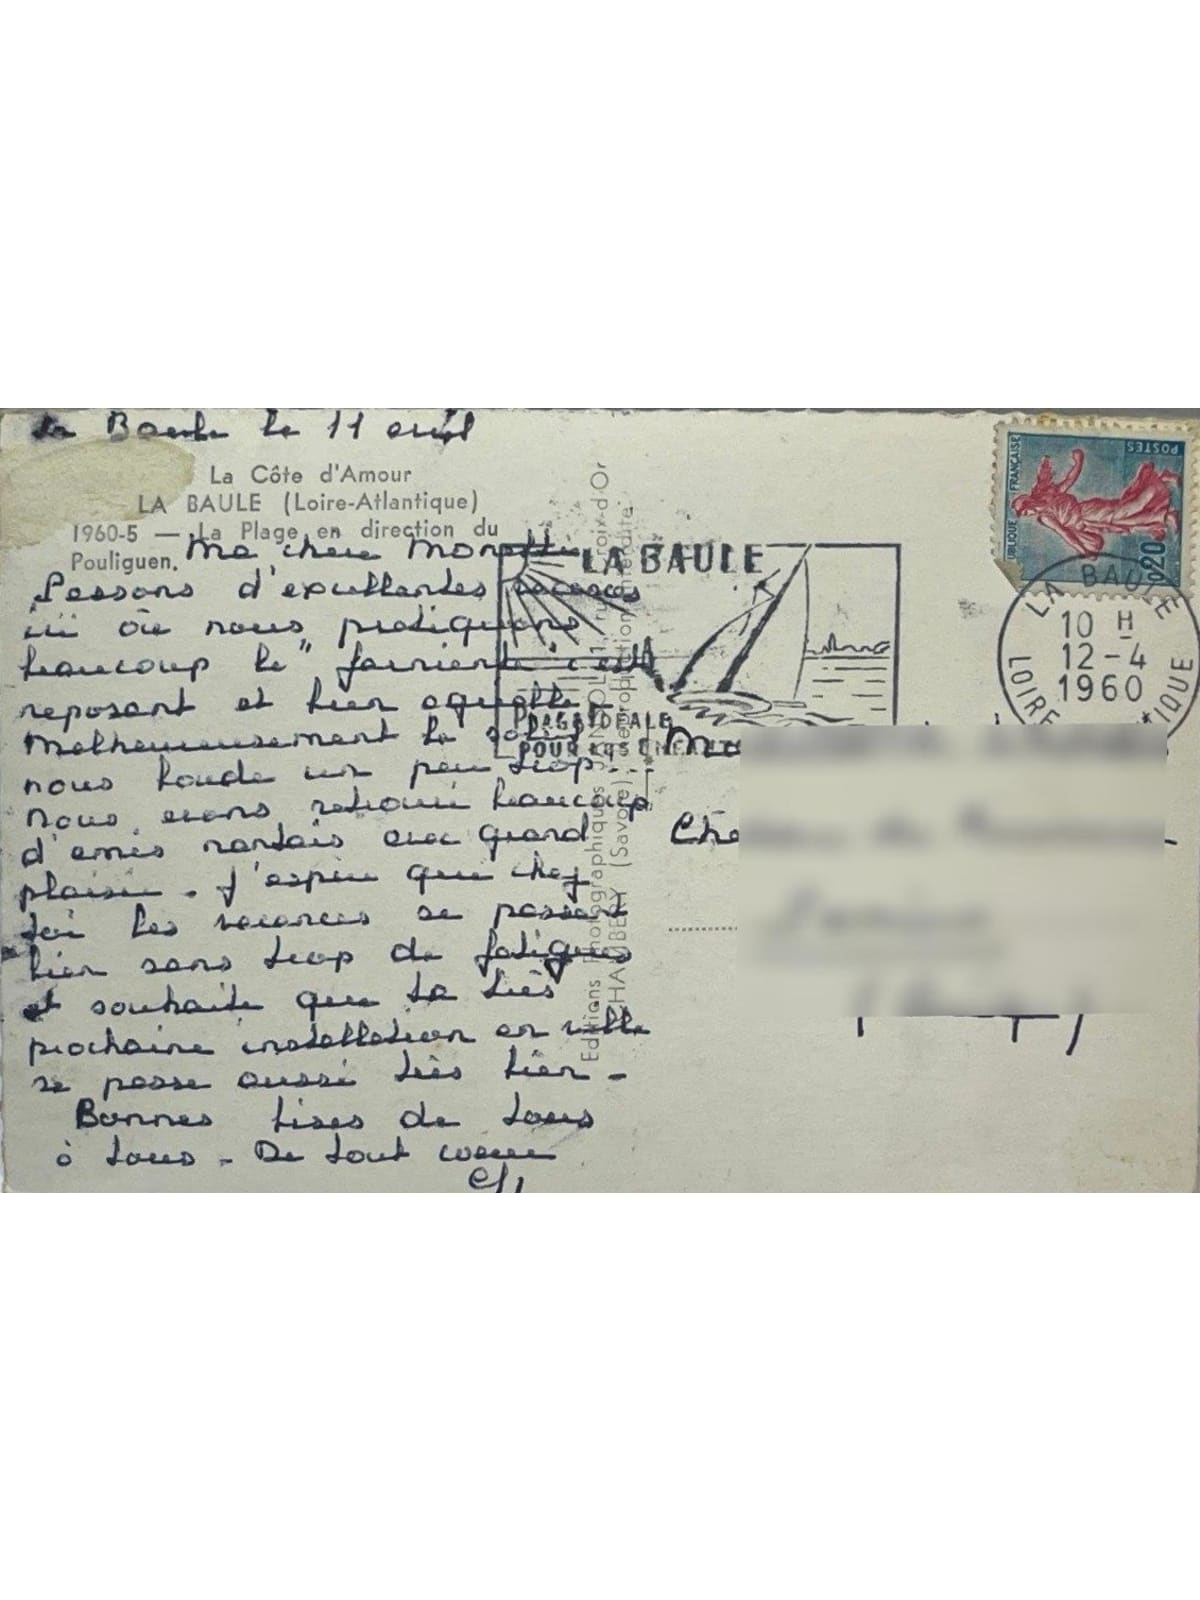 La Baule le 11 avril
La Côte d'Amour
LA BAULE (Loire-Atlantique)
1960-5 — La Plage en direction du
Pouliguen.
Ma chere
Passons d'excellentes vacances
ici où nous pratiquons
beaucoup le "farniente" c'est
reposant et bien agréable.
Malheureusement le soleil
nous boude un peu trop...
Nous avons retrouvé beaucoup
d'amis nantais avec grand
plaisir. J'espère que chez
toi les vacances se passent
bien sans trop de fatigues
et souhaite que ta très
prochaine installation en ville
se passe aussi très bien -
Bonnes bises de tous
à tous - De tout coeur
LA BAULE
PLAGE IDÉALE
POUR
Editions Photographiques
CHAMBERY (Savoie)
Reproduction interdite
RÉPUBLIQUE FRANÇAISE
POSTES
0,20
LA BAULE
10 H
12-4
1960
LOIRE